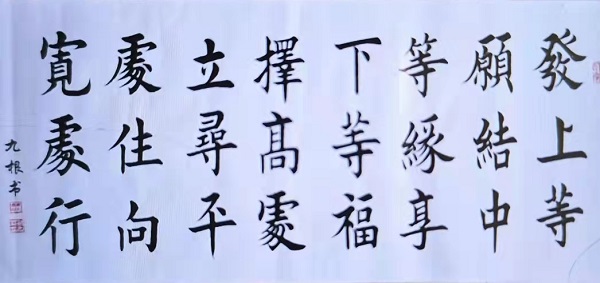 發上等
願結中
等緣享
下等福
擇高處
立尋平
處住向
寬處行
九根书